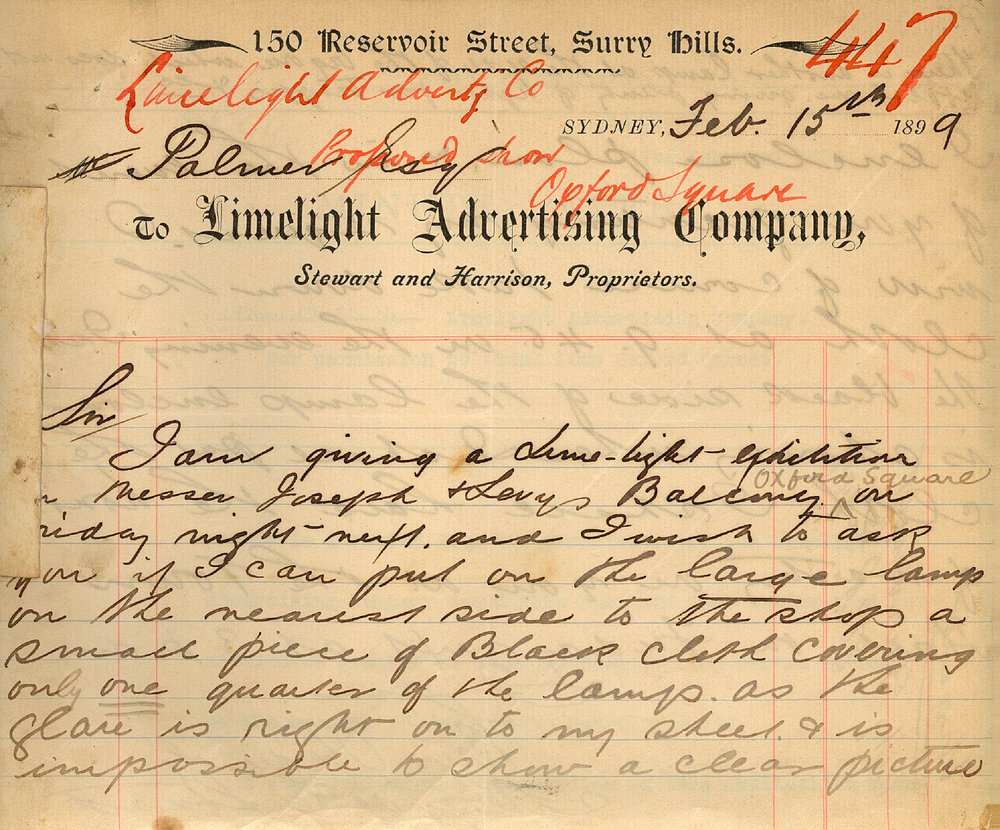 150 Reservoir Street, Surry Hills.
447
Limelight Advertg Co
SYDNEY, Feb. 15th 1899
Palmer Esq
Proposed show
Oxford Square
To Limelight Advertising Company,
Stewart and Harrison, Proprietors.
Sir/
I am giving a Lime-light exhibition
Oxford Square
Messer Joseph & Levys Balcony ^ on
riday night next. and I wish to ask
you if I can put on the large lamp
on the nearest side to the shop a
small piece of Black cloth covering
only one quarter of the lamp. as the
glare is right on to my sheet. & is
impossible to show a clear picture